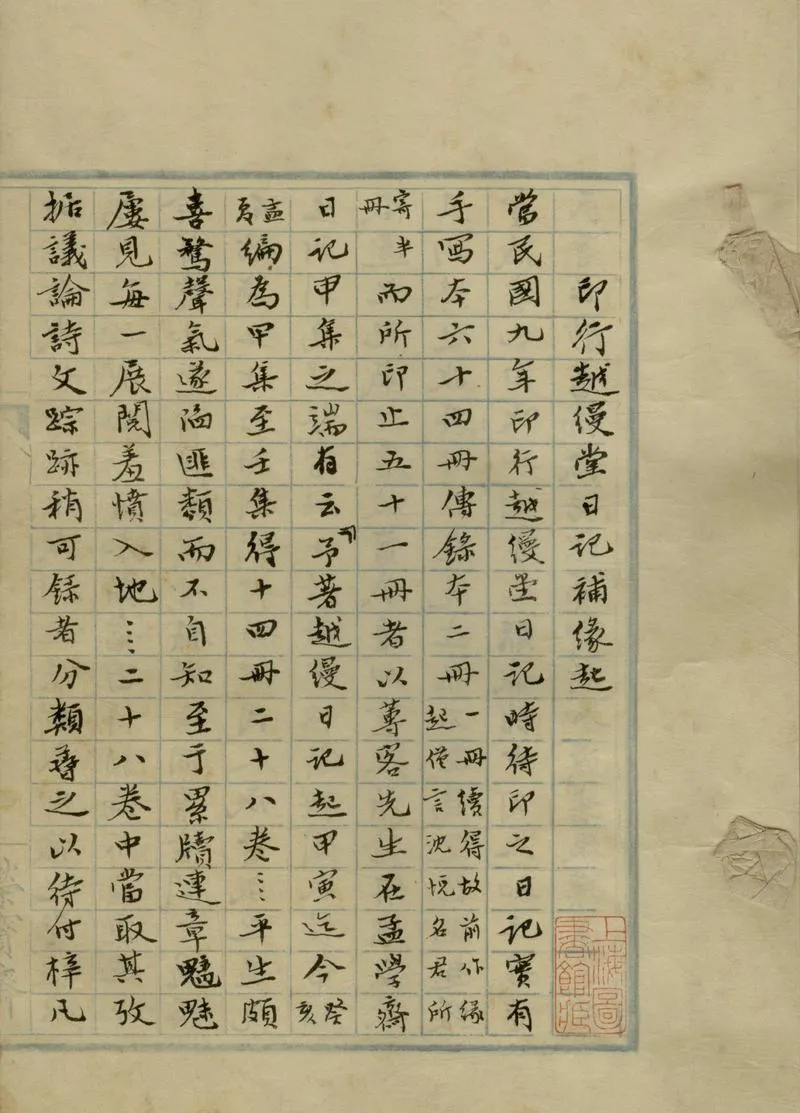 印行越縵堂日記補緣起
當民國九年印行越縵堂日記時待印之日記實有
手寫本六十四冊傳錄本二冊一冊續得故前作緣起僅言沈悅名君所
寄半冊而所印止五十一冊者以蓴客先生在孟學齋
日記甲集之端有云「予著越縵日記起甲寅迄今癸亥
孟夏編為甲集至壬集得十四冊二十八卷……平生頗
喜騖聲氣遂陷匪類而不自知至于累牘連章魑魅
屢見每一展閱羞憤入地……二十八卷中當取其攷
据議論詩文踪跡稍可録者分類尋之以待付梓凡
上海圖書館藏